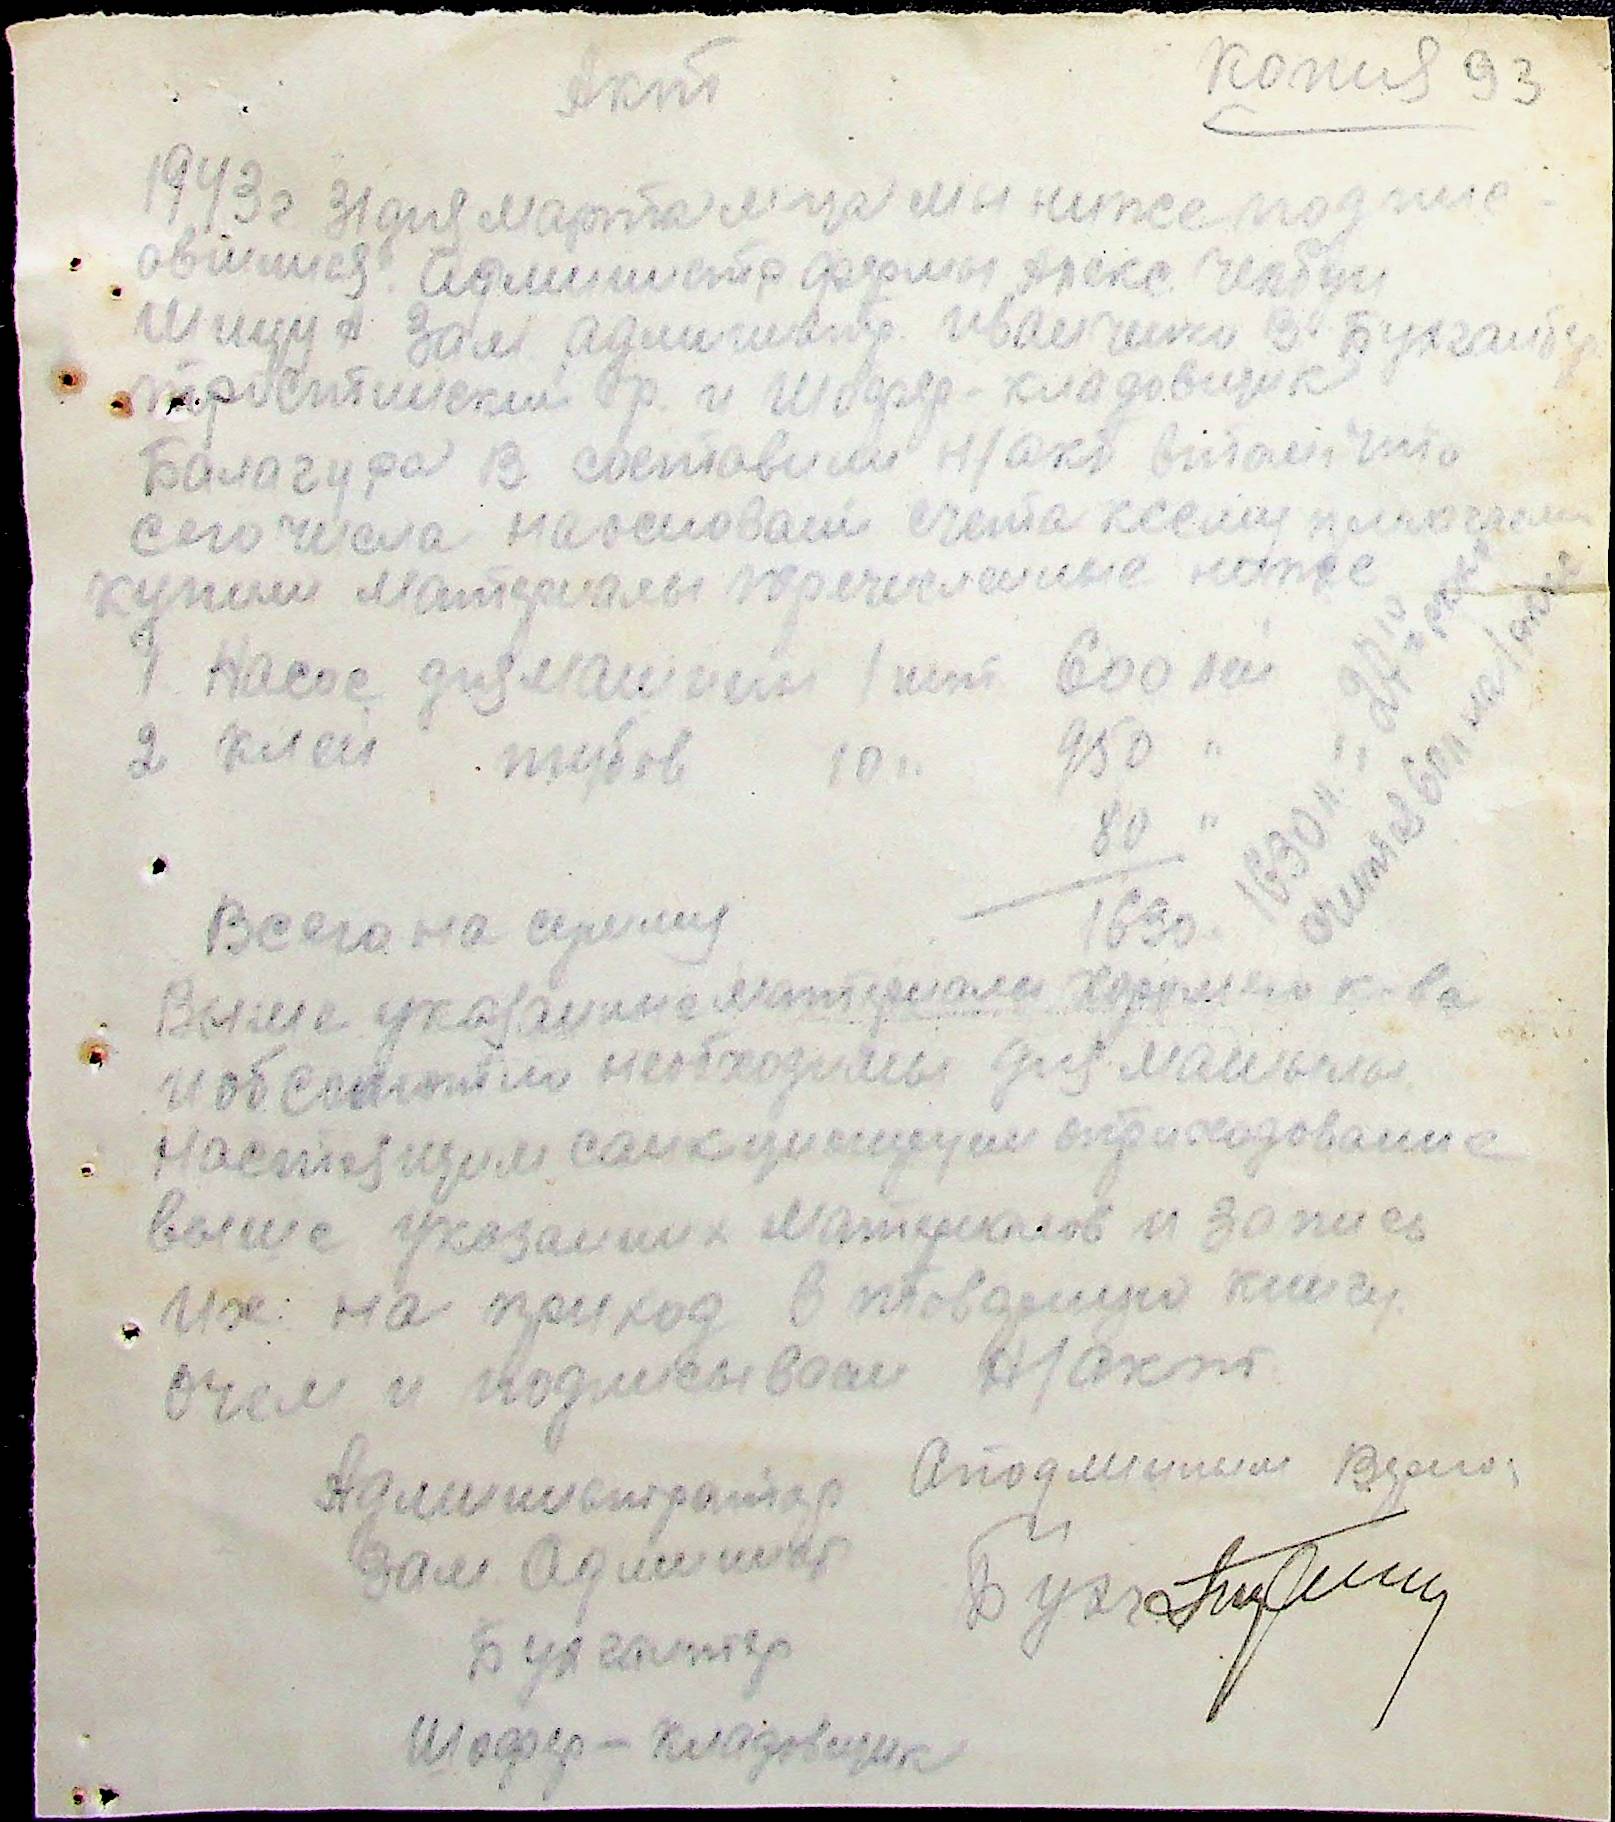 Акт
Копия 93
1943г 31 дня марта м-ца мы ниже подпис-
авшиеся Администр фермы Алекс
Зам админстр. Иванченко В. Бухгалтер
р. и Шофер-кладовщик
Балагура В составили н/акт в том что
сего числа на основании счета к сему
купили материалы перечисленные ниже
1 Насос для машины 1 шт 600 лей
2 клей тубов 10 " 950 " "
80 "
1630 л.
Всего на сумму 1630.
Выше указанные материалы хорошего к-ва
и необходимы для машины
Настоящим санкционируем оприходование
выше указанных материалов и запись
их на приход в товарную книгу.
О чем и подписываем н/акт.
Администратор
Зам Админист
Бухг
Бухгалтер
Шофер - кладовщик